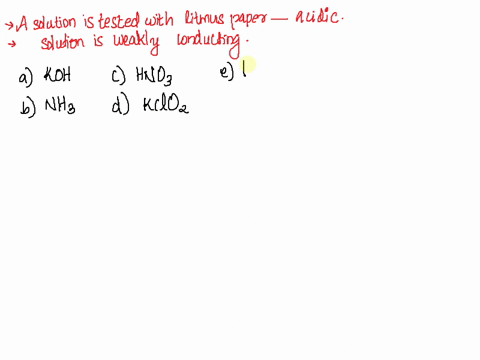 → A solution is tested with litmus paper — acidic.
→ solution is weakly conducting.
a) KOH c) HNO3 e) 
b) NH3 d) KClO2